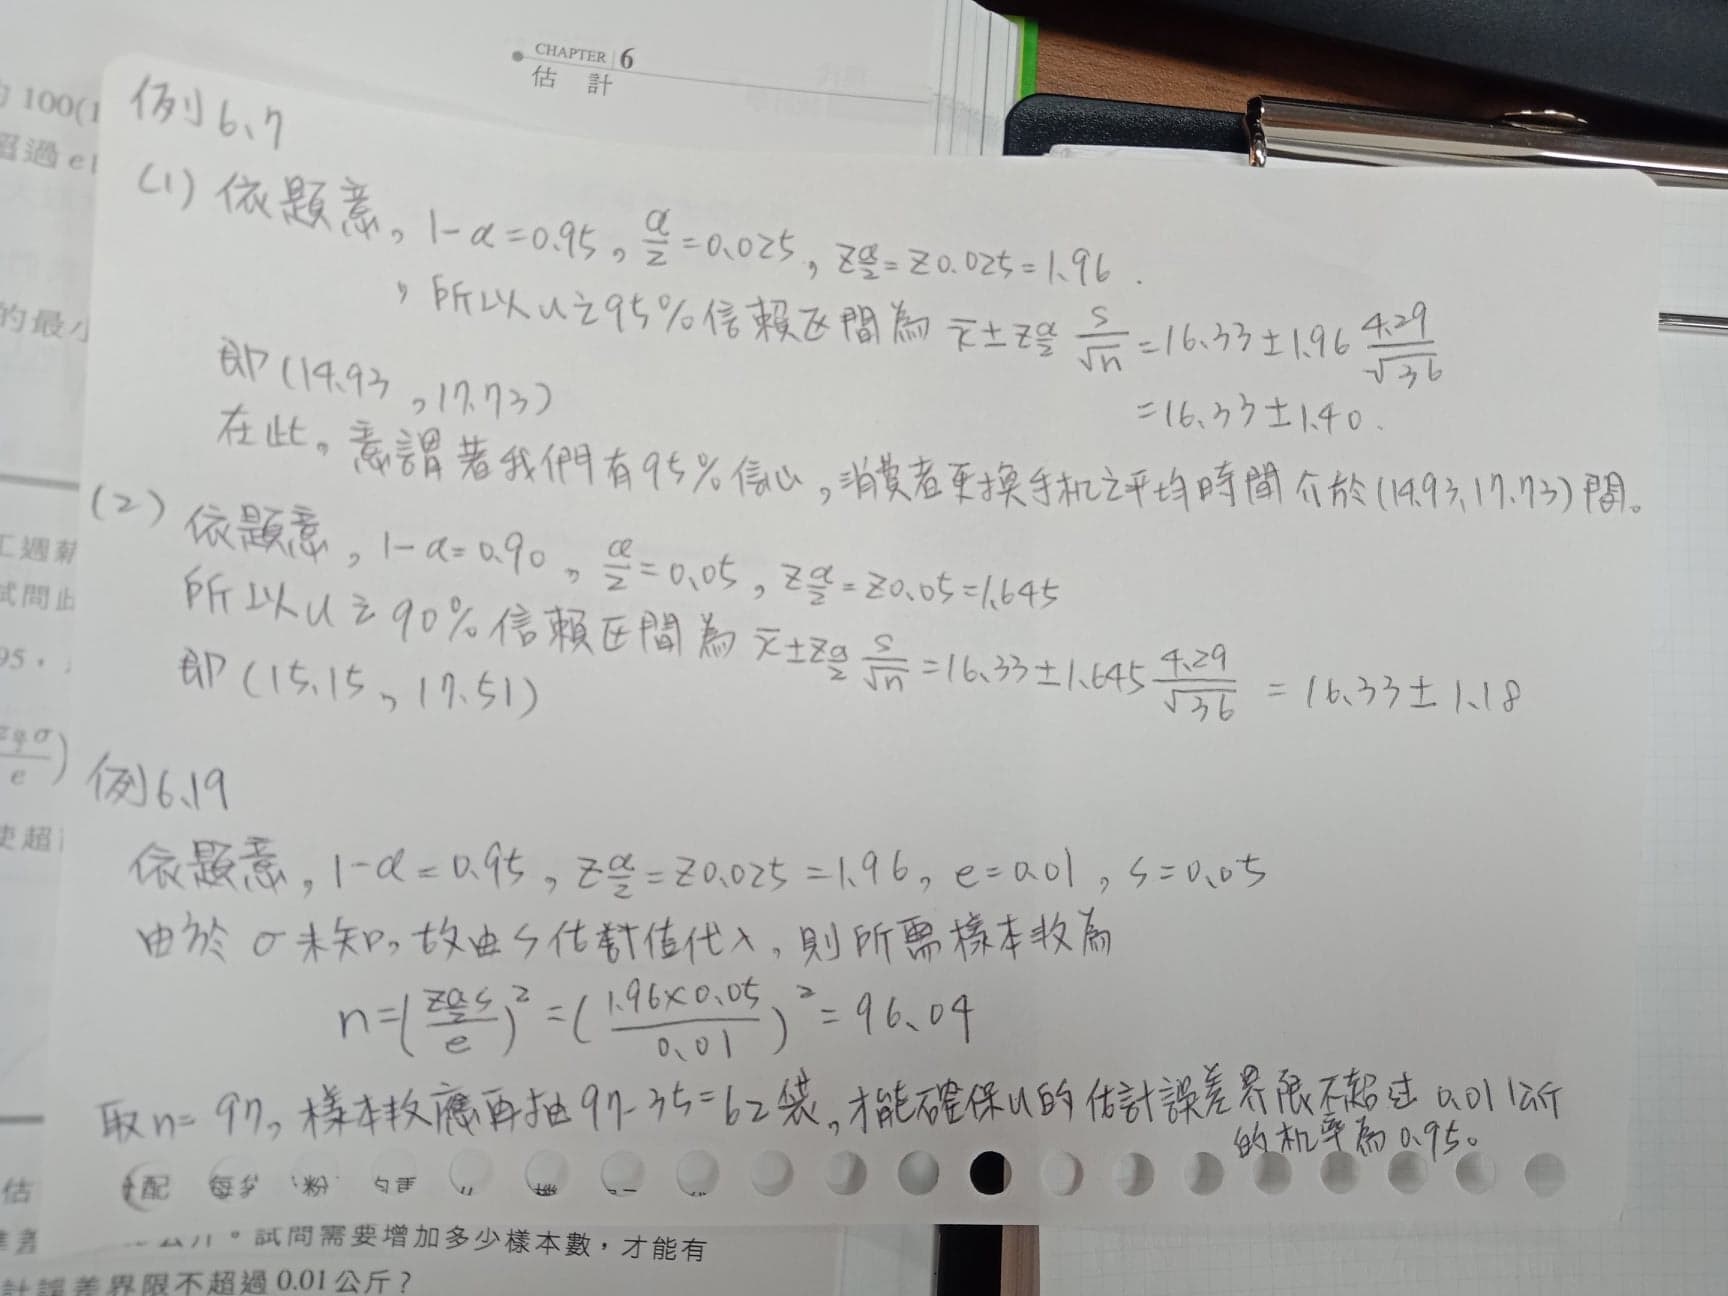 CHAPTER 6
估 計
例6.7
(1) 依題意，1-α=0.95，α/2=0.025，zα/2=z0.025=1.96.
，所以u之95%信賴区間為 x̄±zα/2 s/√n=16.33±1.96 4.29/√36
即(14.93，17.73)
=16.33±1.40.
在此，意謂著我們有95%信心，消費者更換手机之平均時間介於(14.93,17.73)間。
(2) 依題意，1-α=0.90，α/2=0.05，zα/2=z0.05=1.645
所以u之90%信賴区間為 x̄±zα/2 s/√n=16.33±1.645 4.29/√36 = 16.33±1.18
即(15.15，17.51)
例6.19
依題意，1-α=0.95，zα/2=z0.025=1.96，e=0.01，s=0.05
由於σ未知，故由s估計值代入，則所需樣本数為
n=(zα/2 s/e)²=(1.96×0.05/0.01)²=96.04
取n=97，樣本数應再抽97-35=62袋，才能確保u的估計誤差界限不超过0.01公斤
的机率為0.95。
100(1
超過e
的最小
工週薪
試問此
95，
σ
e
使超
估
配 每 粉
。試問需要增加多少樣本數，才能有
計誤差界限不超過0.01公斤？